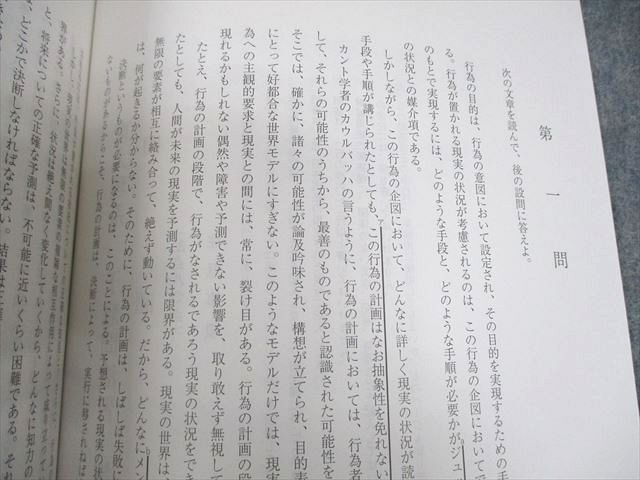 第一問
次の文章を読んで、後の設問に答えよ。
行為の目的は、行為の意図において設定され、その目的を実現するための手
る。行為が置かれる現実の状況が考慮されるのは、この行為の企図においてで
のもとで実現するには、どのような手段と、どのような手順が必要かがジュ
の状況との媒介項である。
しかしながら、この行為の企図において、どんなに詳しく現実の状況が読
手段や手順が講じられたとしても、この行為の計画はなお抽象性を免れない
ア
カント学者のカウルバッハの言うように、行為の計画においては、行為者
して、それらの可能性のうちから、最善のものであると認識された可能性を
そこでは、確かに、諸々の可能性が論及吟味され、構想が立てられ、目的表
にとって好都合な世界モデルにすぎない。このようなモデルだけでは、現実
為への主観的要求と現実との間には、常に、裂け目がある。行為の計画の段
現れるかもしれない偶然や障害や予測できない影響を、取り敢えず無視して
たとえ、行為の計画の段階で、行為がなされるであろう現実の状況をでき
たとしても、人間が未来の現実を予測するには限界がある。現実の世界は、
無限の要素が相互に絡み合って、絶えず動いている。だから、どんなにメン
は、何が起きるか分からない。そのために、行為の計画は、しばしば失敗に
決断というものが必要になるのは、このことによる。予想される現実の状
ないものがあるからこそ、行為の計画は、決断によって、実行に移されねば
称がある。さらに、状況は絶え間なく変化していくから、どんなに知力の
と、将来についての正確な予測は、不可能に近いくらい困難である。それ
、どこかで決断しなければならない。結果は